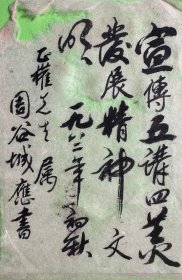 宣傳五講四美
發展精神文
明
一九八二年初秋
正權先生属
周谷城應書